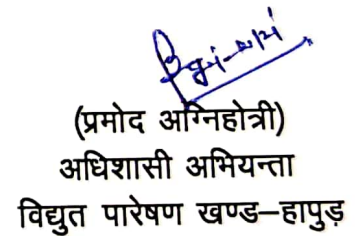 (प्रमोद अग्निहोत्री)
अधिशासी अभियन्ता
विद्युत पारेषण खण्ड–हापुड़